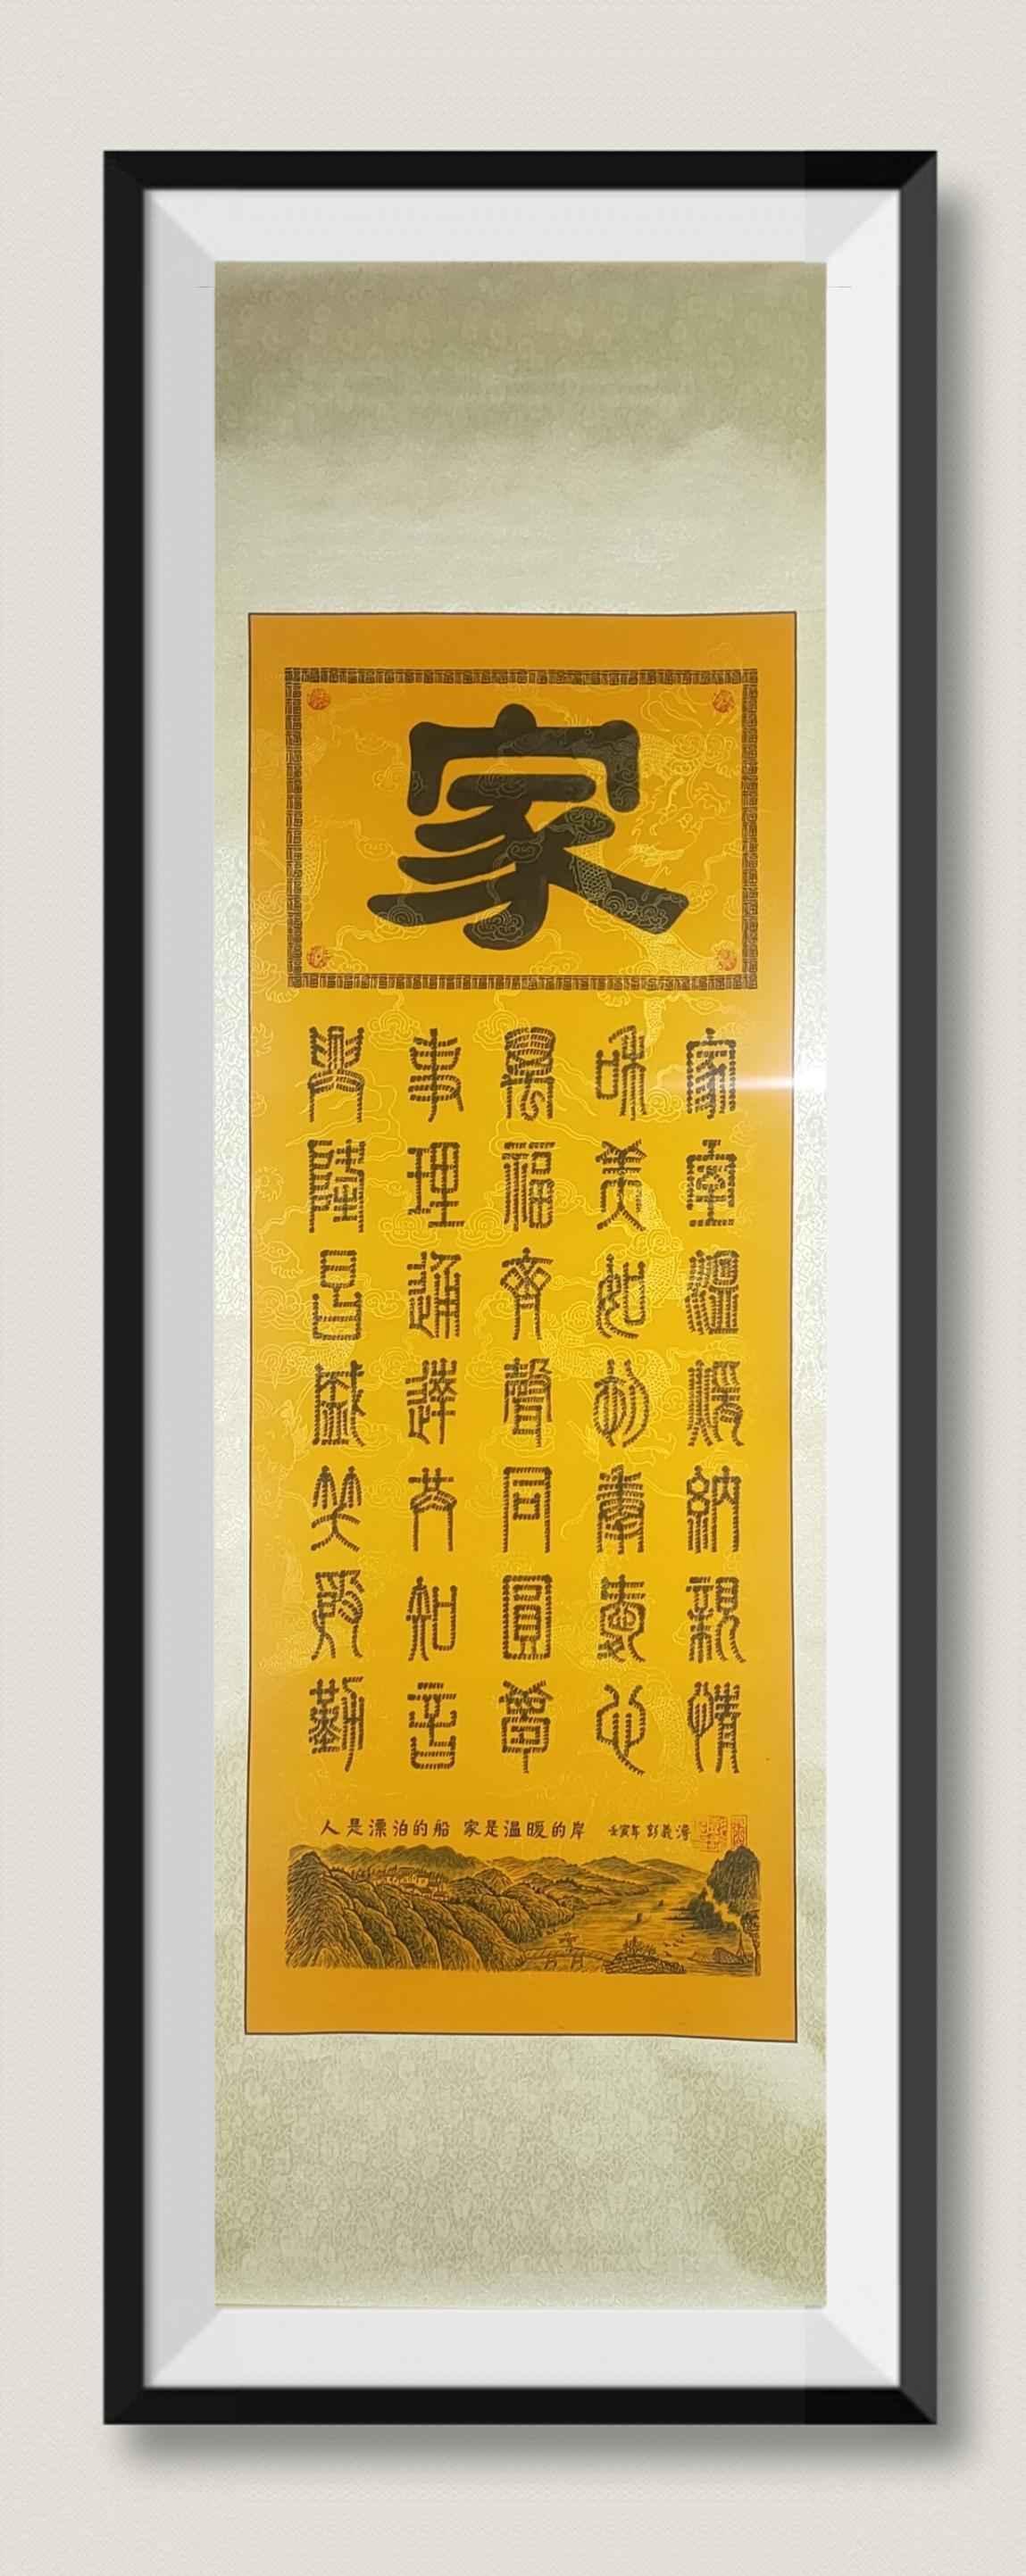 家
家室溫煖納親情
咊美如初奉愛心
萬福齊聲同圓夢
事理通達共知音
興隆昌盛笑殷勤
人是漂泊的船 家是溫暖的岸 壬寅年 彭義濤